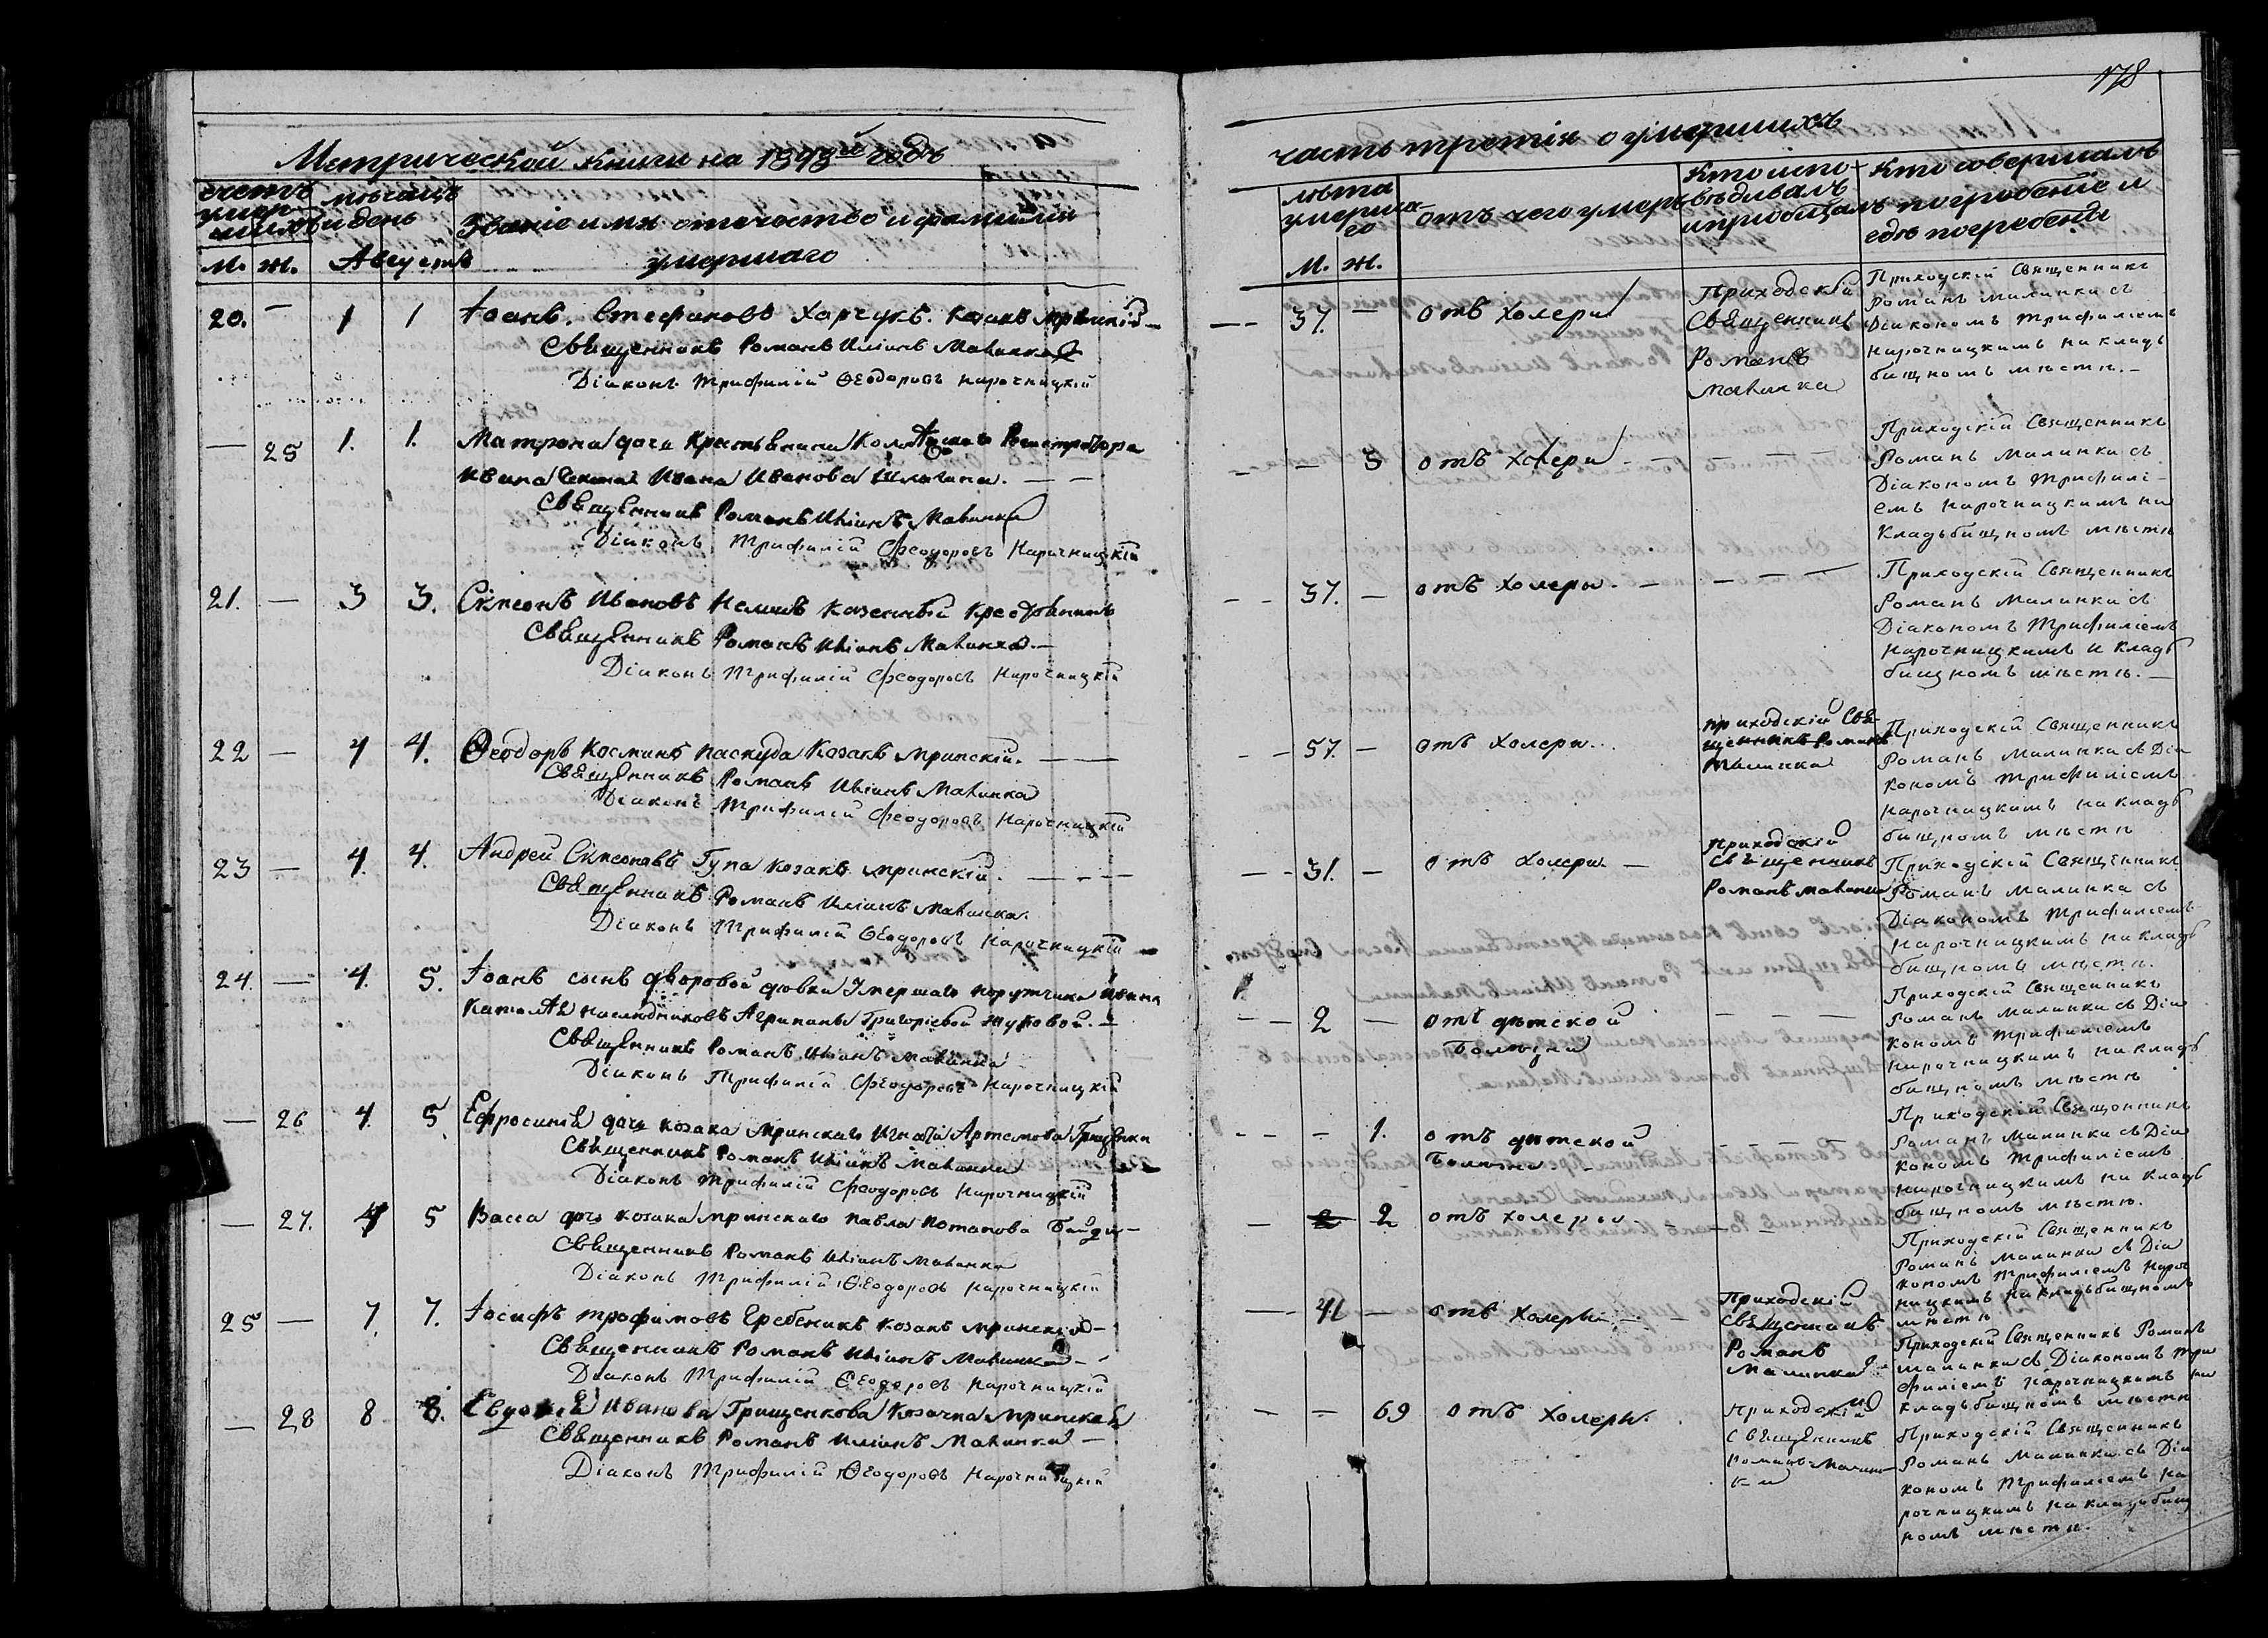 178
Метрической книги на 1848й годъ
часть третія о умершихъ
счетъ умер-шихъ
мѣсяцъ и день
Званіе имя отечество и фамилія умершаго
М. Ж. Августъ
лѣта умерша-го
М. Ж.
отъ чего умеръ
Кто испо-вѣдывалъ и пріобщалъ
Кто совершалъ погребеніе и гдѣ погребены
20. — 1 1 Іоанъ Стефановъ Харчукъ. Козакъ мринскій —
Священникъ Романъ Иліинъ Малинка
Діаконъ Трифилій Ѳеодоровъ Нарочницкій
37. — отъ холеры
Приходскій
Священникъ
Романъ
Малинка
Приходскій Священникъ
Романъ Малинка съ
Діакономъ Трифиліемъ
Нарочницкимъ на кладъ
бищномъ мѣстѣ. —
— 25 1. 1. Матрона дочь Крестьянина Регистратора
Ивана Ивана Иванова
Священникъ Романъ Иліинъ Малинка
Діаконъ Трифилій Феодоровъ Нарочницкій
— 3 отъ холеры —
Приходскій Священникъ
Романъ Малинка съ
Діакономъ Трифилі-
емъ Нарочницкимъ на
Кладьбищномъ мѣстѣ
21. — 3 3. Сѵмеонъ Ивановъ казенный крестьянинъ
Священникъ Романъ Иліинъ Малинка. —
Діаконъ Трифилій Феодоровъ Нарочницкій
37. — отъ холеры. — — — —
Приходскій Священникъ
Романъ Малинка съ
Діакономъ Трифиліемъ
Нарочницкимъ н кладъ
бищномъ мѣстѣ. —
22 — 4 4. Ѳеодоръ Косминъ Паскуда Козакъ мринскій. — —
Священникъ Романъ Иліинъ Малинка
Діаконъ Трифилій Феодоровъ Нарочницкій
57. — отъ холеры...
приходскій Свя-
щенникъ Романъ
Малинка
Приходскій Священникъ
Романъ Малинка съ Діа
кономъ Трифиліемъ
Нарочницкимъ на кладъ
бищномъ мѣстѣ
23 — 4. 4. Андрей Сѵмеоновъ Гупа козакъ мринскій. — — —
Священникъ Романъ Иліинъ Малинка.
Діаконъ Трифилій Ѳеодоровъ Нарочницкій
31. — отъ холеры —
приходскій
священникъ
Романъ Малинка
Приходскій Священникъ
Романъ Малинка съ
Діакономъ Трифиліемъ
Нарочницкимъ на кладъ
бищномъ мѣстѣ.
24. — 4. 5. Іоанъ сынъ дворовой дѣвки Умершаго порутчика Ивана
наслѣдниковъ Агрипаны Григоріевой Жуковой. —
Священникъ Романъ Иліинъ Малинка
Діаконъ Трифилій Феодоровъ Нарочницкій
2 — отъ дѣтской
Болѣзни
— — —
Приходскій Священникъ
Романъ Малинка съ Діа
кономъ Трифиліемъ
Нарочницкимъ на кладъ
бищномъ мѣстѣ
— 26 4. 5 Ефросинія дочь козака мринскаго Игнатія Артемова Грищенка
Священникъ Романъ Иліинъ Малинка
Діаконъ Трифилій Феодоровъ Нарочницкій
— 1. отъ дѣтской
Болѣзни —
Приходскій Священникъ
Романъ Малинка съ Діа
кономъ Трифиліемъ
Нарочницкимъ на кладъ
бищномъ мѣстѣ.
— 27. 4 5 Васса дочь козака мринскаго Павла Потапова Байды —
Священникъ Романъ Иліинъ Малинка
Діаконъ Трифилій Ѳеодоровъ Нарочницкій
— 2 отъ холеры
Приходскій Священникъ
Романъ Малинка съ Діа
кономъ Трифиліемъ Нароч
ницкимъ на кладьбищномъ
мѣстѣ
25 — 7. 7. Іосифъ Трофимовъ Гребеникъ козакъ мринскій —
Священникъ Романъ Иліинъ Малинка —
Діаконъ Трифилій Ѳеодоровъ Нарочницкій
41 — отъ холеры
Приходскій
Священникъ
Романъ
Малинка
Приходскій Священникъ Романъ
Малинка съ Діакономъ Три
филіемъ Нарочницкимъ на
кладьбищномъ мѣстѣ
— 28 8 8. Ивановa Грищенкова Козачка мринская
Священникъ Романъ Иліинъ Малинка —
Діаконъ Трифилій Ѳеодоровъ Нарочницкій
— 69 отъ холеры.
Приходскій
Священникъ
Романъ Малин-
ка
Приходскій Священникъ
Романъ Малинка съ Діа
кономъ Трифиліемъ На
рочницкимъ на кладьбищ
номъ мѣстѣ.